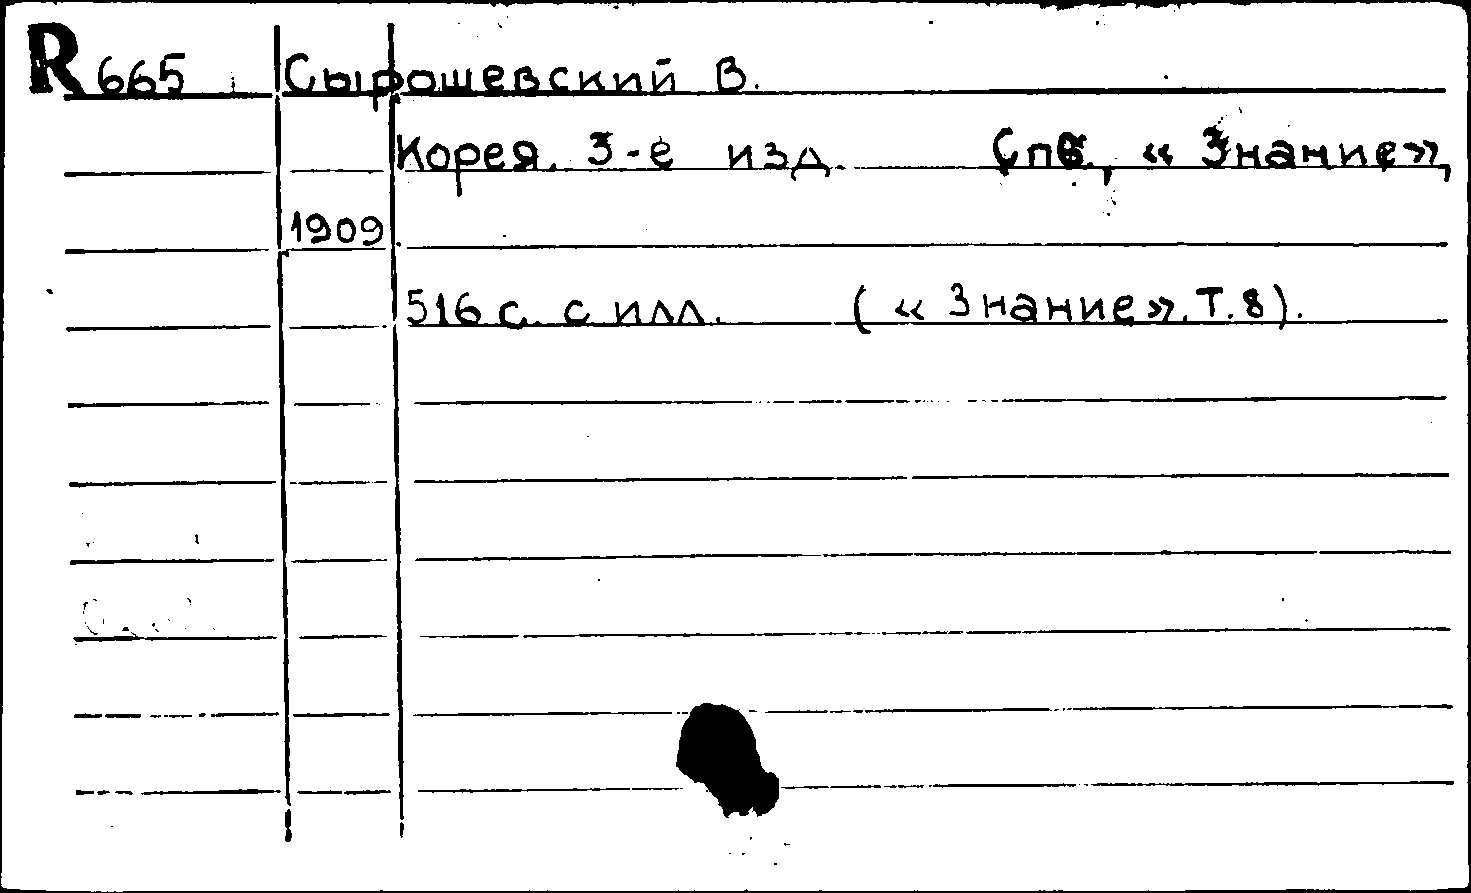 R 665 Сырошевский В.
Корея. 3-е изд. Спб., « Знание»,
1909
516 с. с илл. ( « Знание». Т. 8).